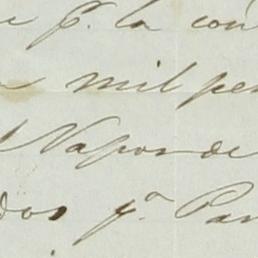 p.ʳ la con
mil pe
Vapor de
dos p.ᵃ Pan